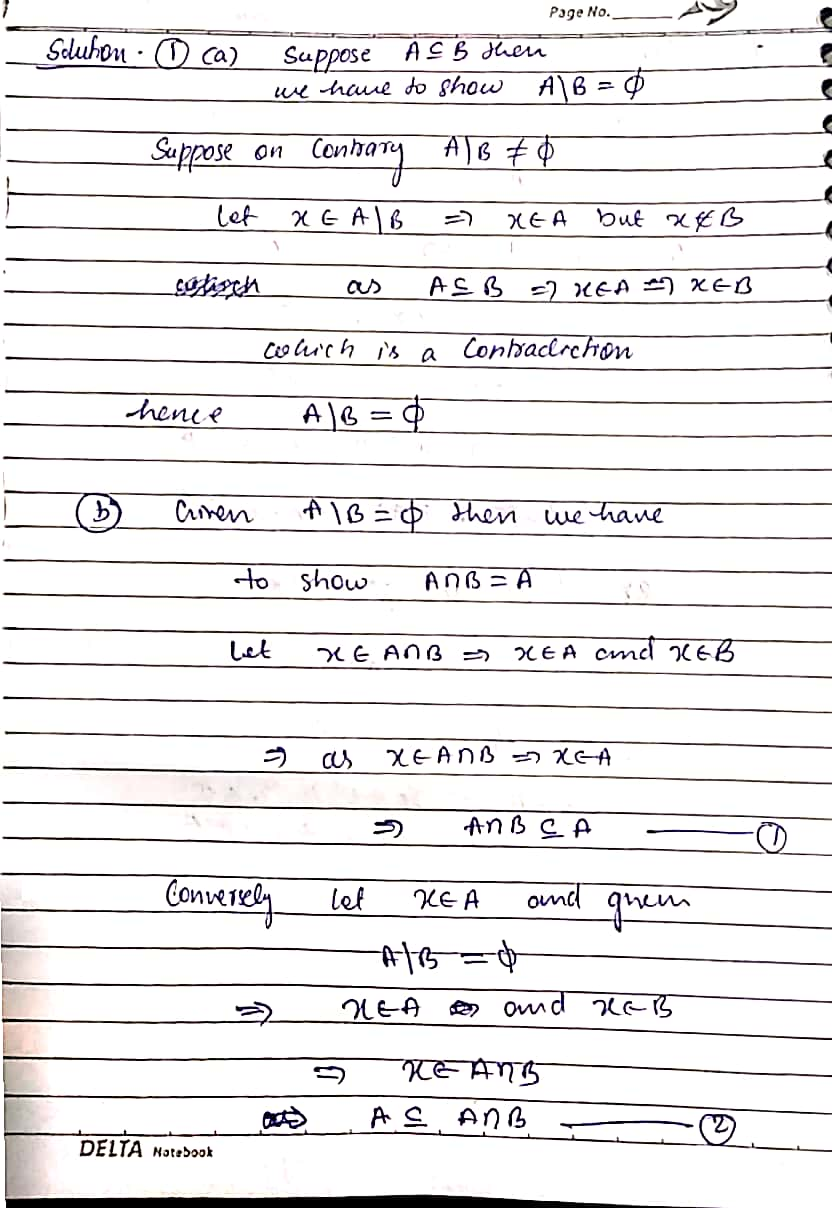 Page No.
Solution. ① (a) Suppose A ⊆ B then
we have to show A\B = ϕ
Suppose on Contrary A\B ≠ ϕ
let x ∈ A\B ⇒ x∈A but x∉B
as A⊆B ⇒ x∈A ⇒ x∈B
which is a Contradiction
hence A\B = ϕ
ⓑ Given A\B = ϕ then we have
to show A∩B = A
Let x ∈ A∩B ⇒ x∈A and x∈B
⇒ as x∈A∩B ⇒ x∈A
⇒ A∩B ⊆ A ——— ①
Conversely let x∈A and given
A\B = ϕ
⇒ x∈A and x∈B
⇒ x∈A∩B
⇒ A ⊆ A∩B ——— ②
DELTA Notebook